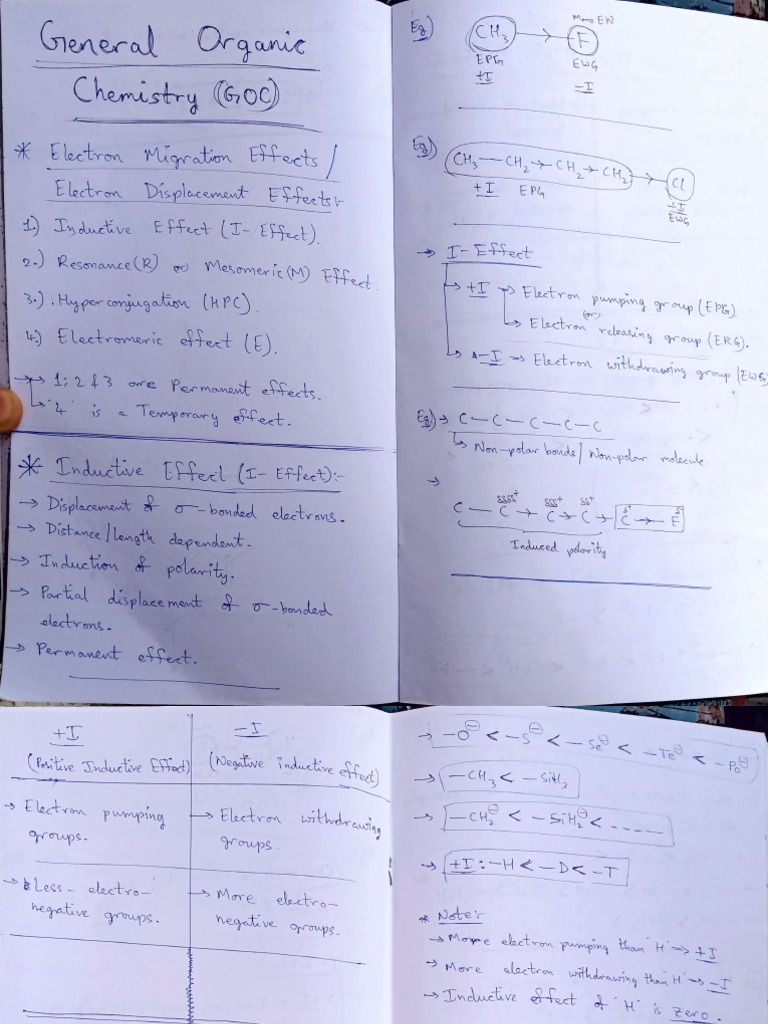 General Organic
Chemistry (GOC)
* Electron Migration Effects /
Electron Displacement Effects:-
1.) Inductive Effect (I-Effect).
2.) Resonance(R) or Mesomeric(M) Effect.
3.) Hyperconjugation (HPC).
4.) Electromeric effect (E).
→ 1, 2 & 3 are Permanent effects.
→ '4' is a Temporary effect.
* Inductive Effect (I-Effect):-
→ Displacement of σ-bonded electrons.
→ Distance/length dependent.
→ Induction of polarity.
→ Partial displacement of σ-bonded
electrons.
→ Permanent effect.
Eg)
More EN
CH₃ → F
EPG EWG
+I -I
Eg)
CH₃—CH₂→CH₂→CH₂→Cl
+I EPG
±I
EWG
→ I-Effect
→ +I → Electron pumping group (EPG)
(or)
→ Electron releasing group (ERG).
→ -I → Electron withdrawing group (EWG)
Eg) → C—C—C—C—C
→ Non-polar bonds/Non-polar molecule.
→
δδδδ⁺ δδδ⁺ δδ⁺ δ⁺ δ⁻
C—C→C→C→C→F
Induced polarity
+I
(Positive Inductive Effect)
→ Electron pumping
groups.
→ Less-electro-
negative groups.
-I
(Negative inductive effect)
→ Electron withdrawing
groups.
→ More electro-
negative groups.
→ -O⊖ < -S⊖ < -Se⊖ < -Te⊖ < -Po⊖
→ -CH₃ < -SiH₃
→ -CH₂⊖ < -SiH₂⊖ < -----
→ +I: -H < -D < -T
* Note:-
→ More electron pumping than 'H' → +I
→ More electron withdrawing than 'H' → -I
→ Inductive effect of 'H' is zero.